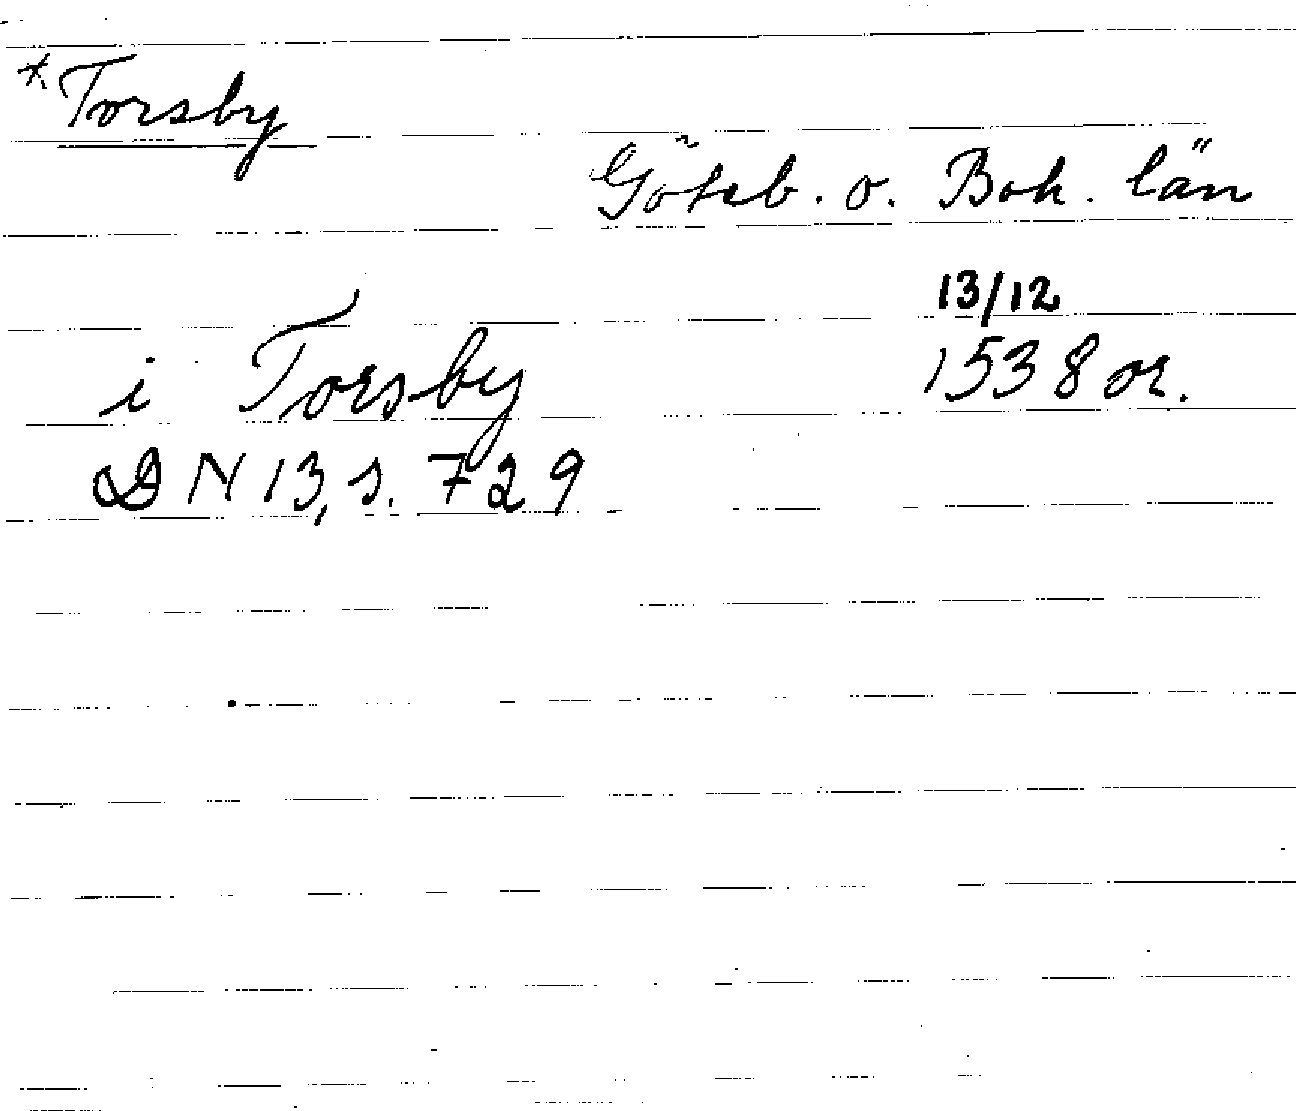 *Torsby
Göteb. o. Boh. län
13/12
i Torsby 1538 or.
DN 13, s. 729